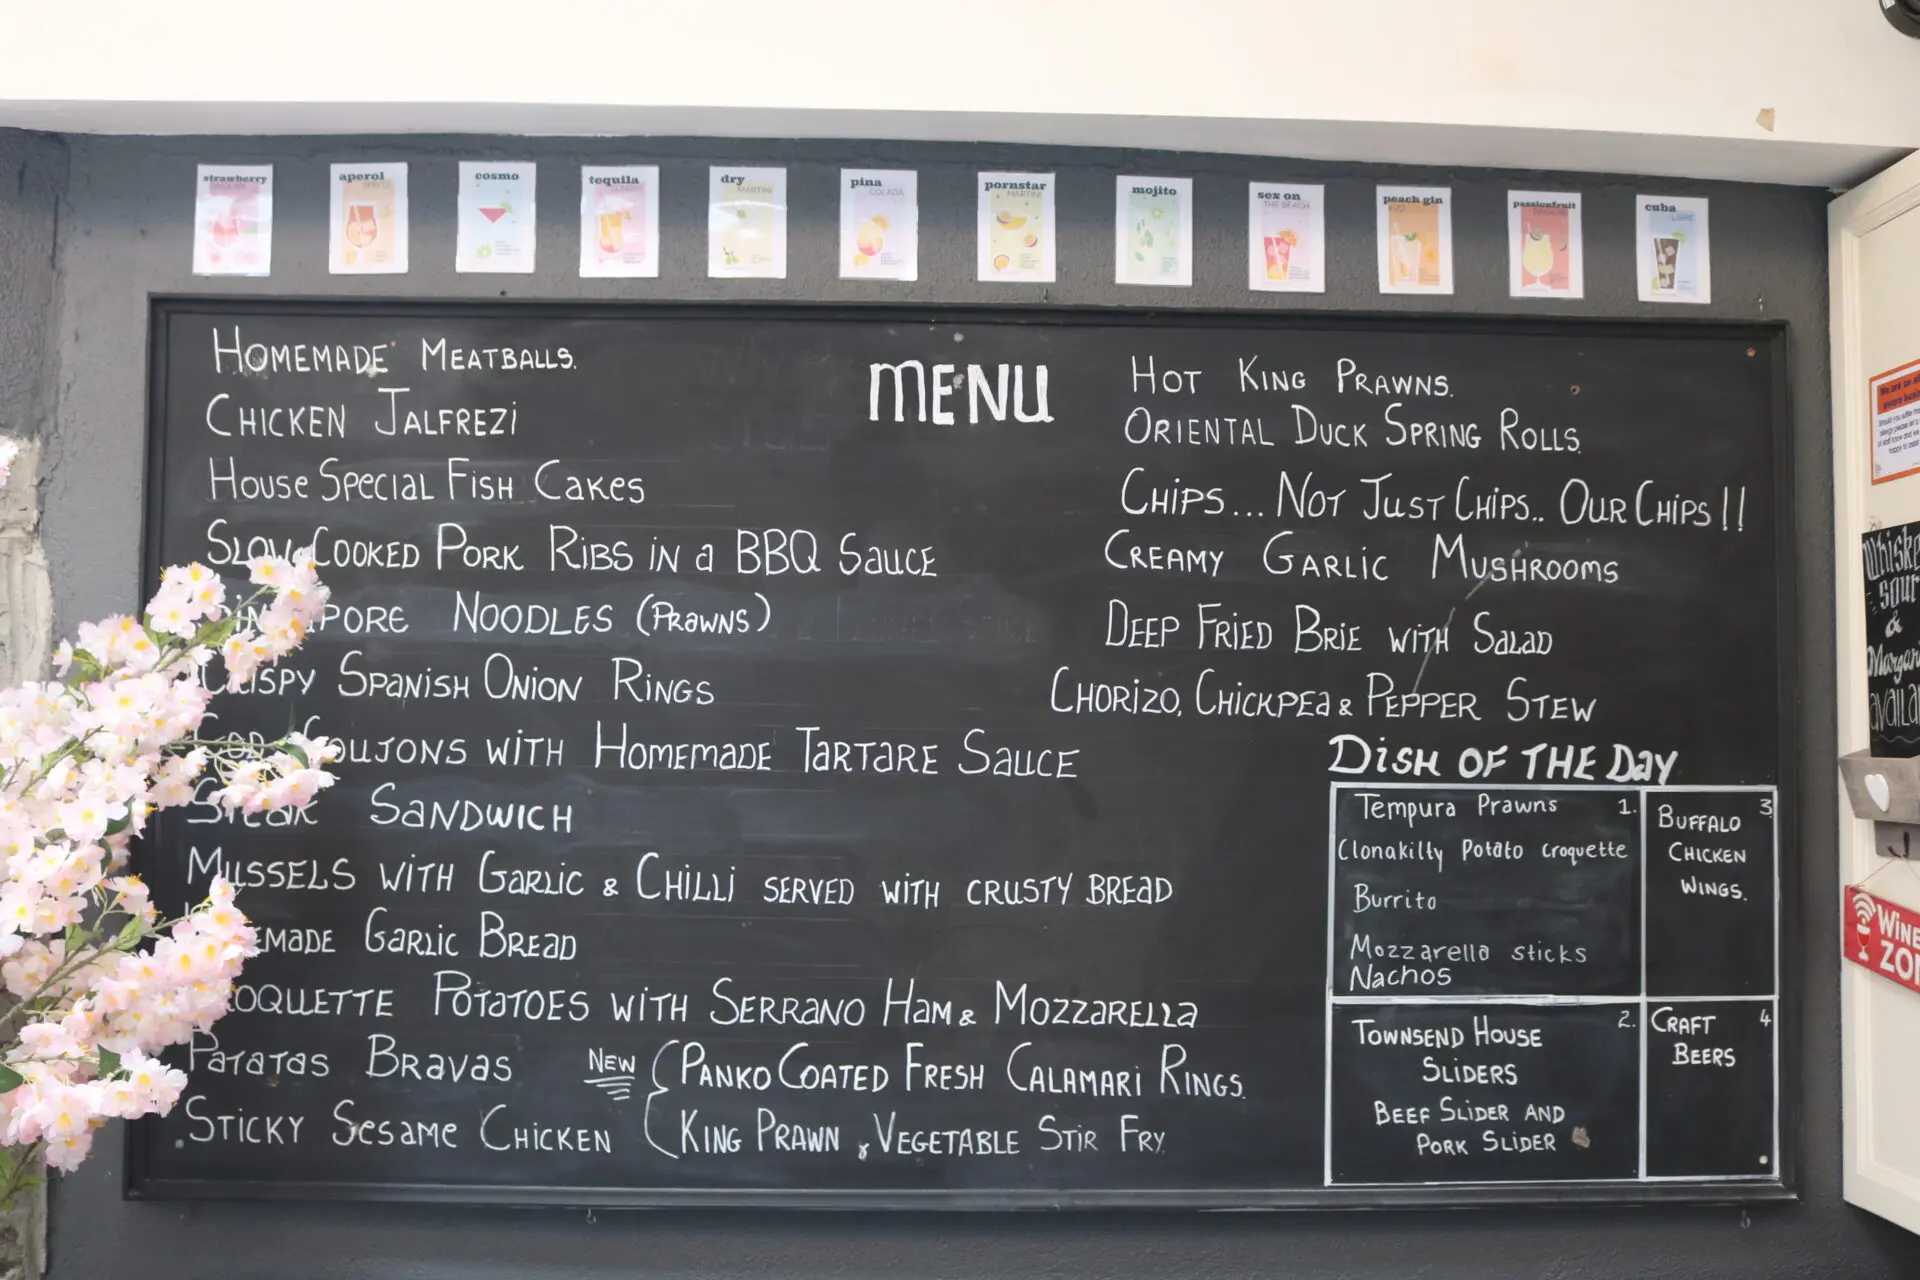 strawberry
aperol
SPRITZ
cosmo
tequila
SUNRISE
dry
MARTINI
pina
COLADA
pornstar
MARTINI
mojito
sex on
THE BEACH
peach gin
passionfruit
cuba
LIBRE
MENU
HOMEMADE MEATBALLS.
CHICKEN JALFREZI
HOUSE SPECIAL FISH CAKES
SLOW COOKED PORK RIBS IN a BBQ SAUCE
PORE NOODLES (PRAWNS)
CRISPY SPANISH ONION RINGS
GOUJONS WITH HOMEMADE TARTARE SAUCE
STEAK SANDWICH
MUSSELS WITH GARLIC & CHILLI SERVED WITH CRUSTY BREAD
EMADE GARLIC BREAD
ROQUETTE POTATOES WITH SERRANO HAM & MOZZARELLA
PATATAS BRAVAS
STICKY SESAME CHICKEN
NEW
PANKO COATED FRESH CALAMARI RINGS.
KING PRAWN & VEGETABLE STIR FRY.
HOT KING PRAWNS.
ORIENTAL DUCK SPRING ROLLS.
CHIPS... NOT JUST CHIPS.. OUR CHIPS!!
CREAMY GARLIC MUSHROOMS
DEEP FRIED BRIE WITH SALAD
CHORIZO, CHICKPEA & PEPPER STEW
DISH OF THE DAY
Tempura Prawns 1.
Clonakilty Potato croquette
Burrito
Mozzarella sticks
Nachos
2.
TOWNSEND HOUSE
SLIDERS
BEEF SLIDER AND
PORK SLIDER
3
BUFFALO
CHICKEN
WINGS.
4
CRAFT
BEERS
Whiske
Sour
&
Margar
availa
WINE
ZO